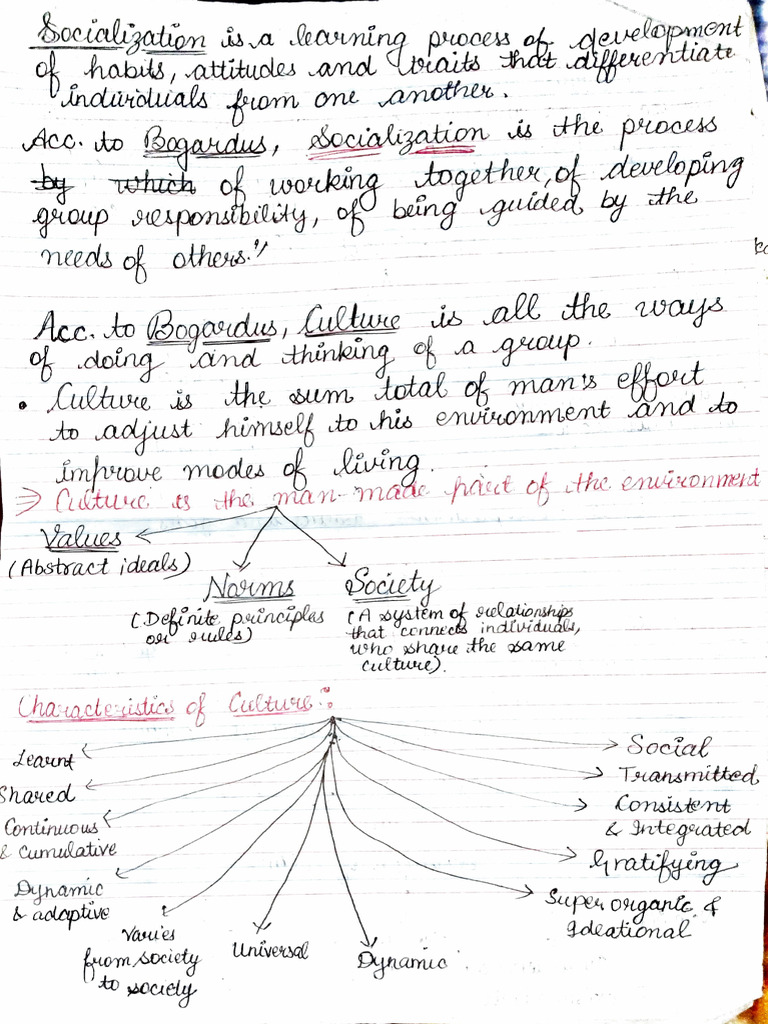 Socialization is a learning process of development
of habits, attitudes and traits that differentiate
individuals from one another.
Acc. to Bogardus, Socialization is the process
by which of working together, of developing
group responsibility, of being guided by the
needs of others."
Acc. to Bogardus, Culture is all the ways
of doing and thinking of a group.
• Culture is the sum total of man's effort
to adjust himself to his environment and to
improve modes of living.
⇒ Culture is the man-made part of the environment
Values
(Abstract ideals)
Norms
(Definite principles
or rules)
Society
(A system of relationships
that connects individuals,
who share the same
culture).
Characteristics of Culture:
Learnt
Shared
Continuous
& Cumulative
Dynamic
& adaptive
Varies
from society
to society
Universal
Dynamic
Super organic &
Ideational
Gratifying
Consistent
& Integrated
Transmitted
Social